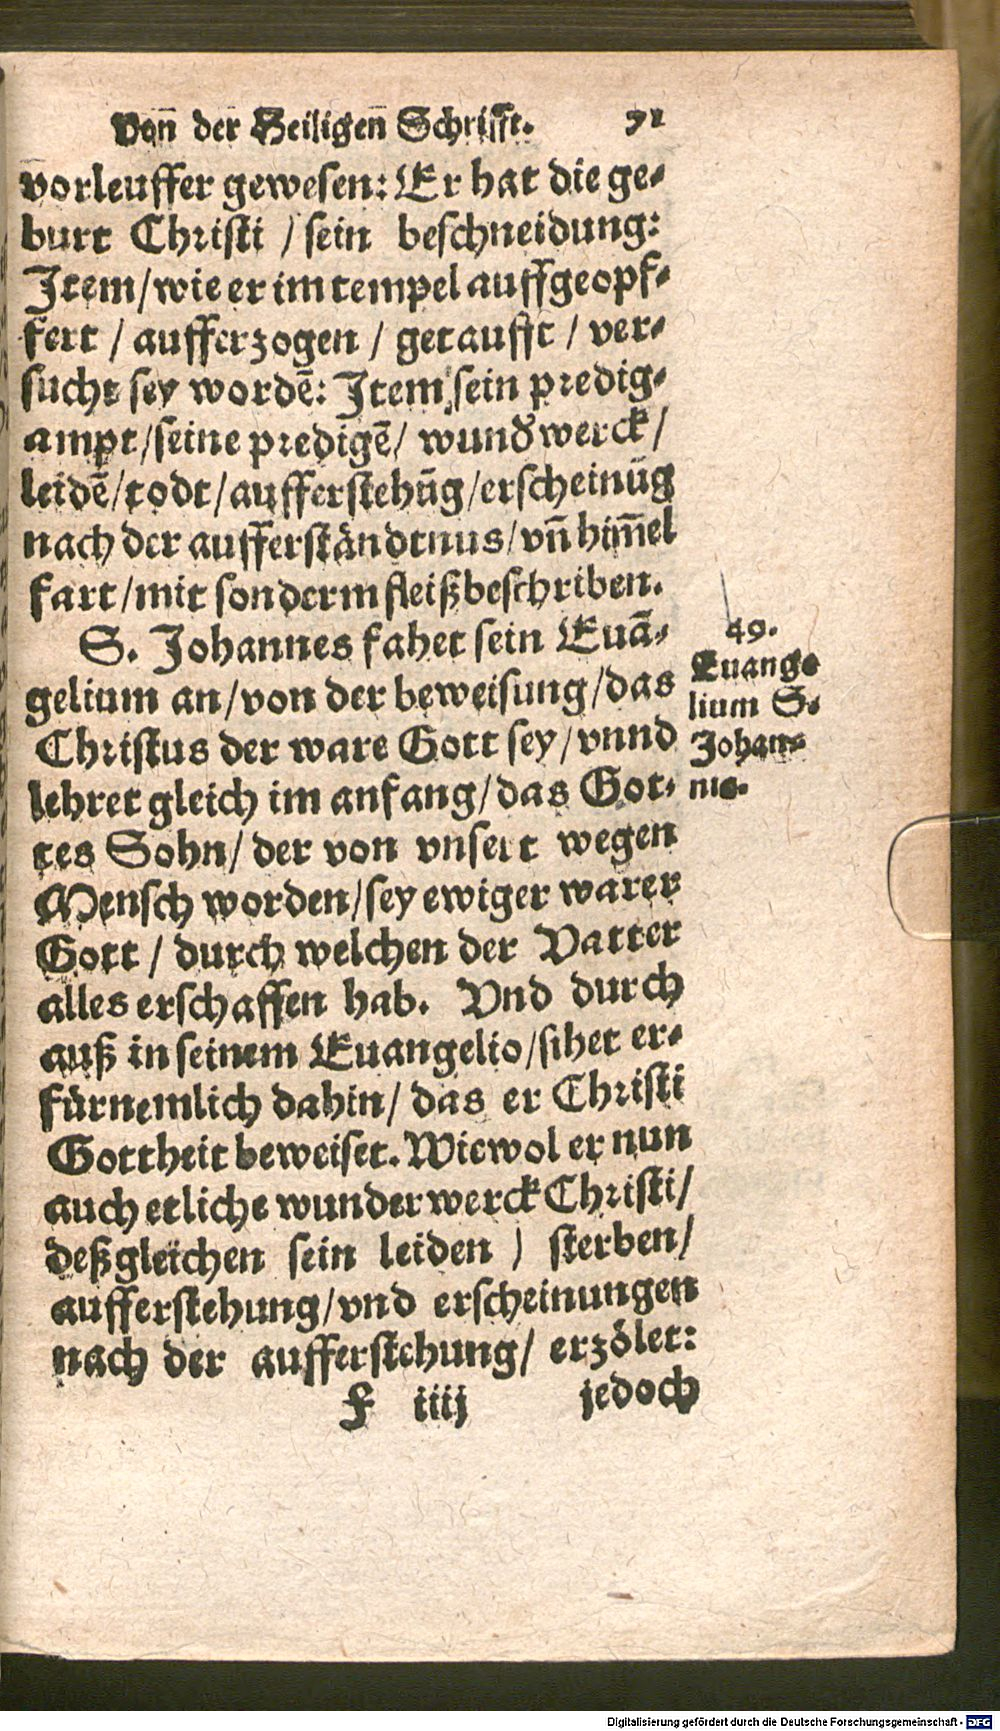 Von̄ der Heiligen̄ Schrifft. 71
vorleuffer gewesen: Er hat die ge-
burt Christi / sein beschneidung:
Item/wie er im tempel auffgeopf-
fert / aufferzogen / getaufft / ver-
sucht sey wordē: Item sein predig-
ampt/seine predigē/ wund'werck/
leidē/todt/aufferstehūg/erscheinūg
nach der aufferständtnus/vn̄ him̄el
fart/mit sonderm fleiß beschriben.
S. Johannes fahet sein Euā-
gelium an/von der beweisung/das
Christus der ware Gott sey/vnnd
lehret gleich im anfang/das Got-
tes Sohn/ der von vnsert wegen
Mensch worden/sey ewiger warer
Gott / durch welchen der Vatter
alles erschaffen hab. Vnd durch
auß in seinem Euangelio/sihet er-
fürnemlich dahin/ das er Christi
Gottheit beweiset. Wiewol er nun
auch etliche wunderwerck Christi/
deßgleichen sein leiden / sterben/
aufferstehung/vnd erscheinungen
nach der aufferstehung/ erzölet:
f iiij jedoch
49.
Euange-
lium S.
Johan-
nis.
Digitalisierung gefördert durch die Deutsche Forschungsgemeinschaft - DFG